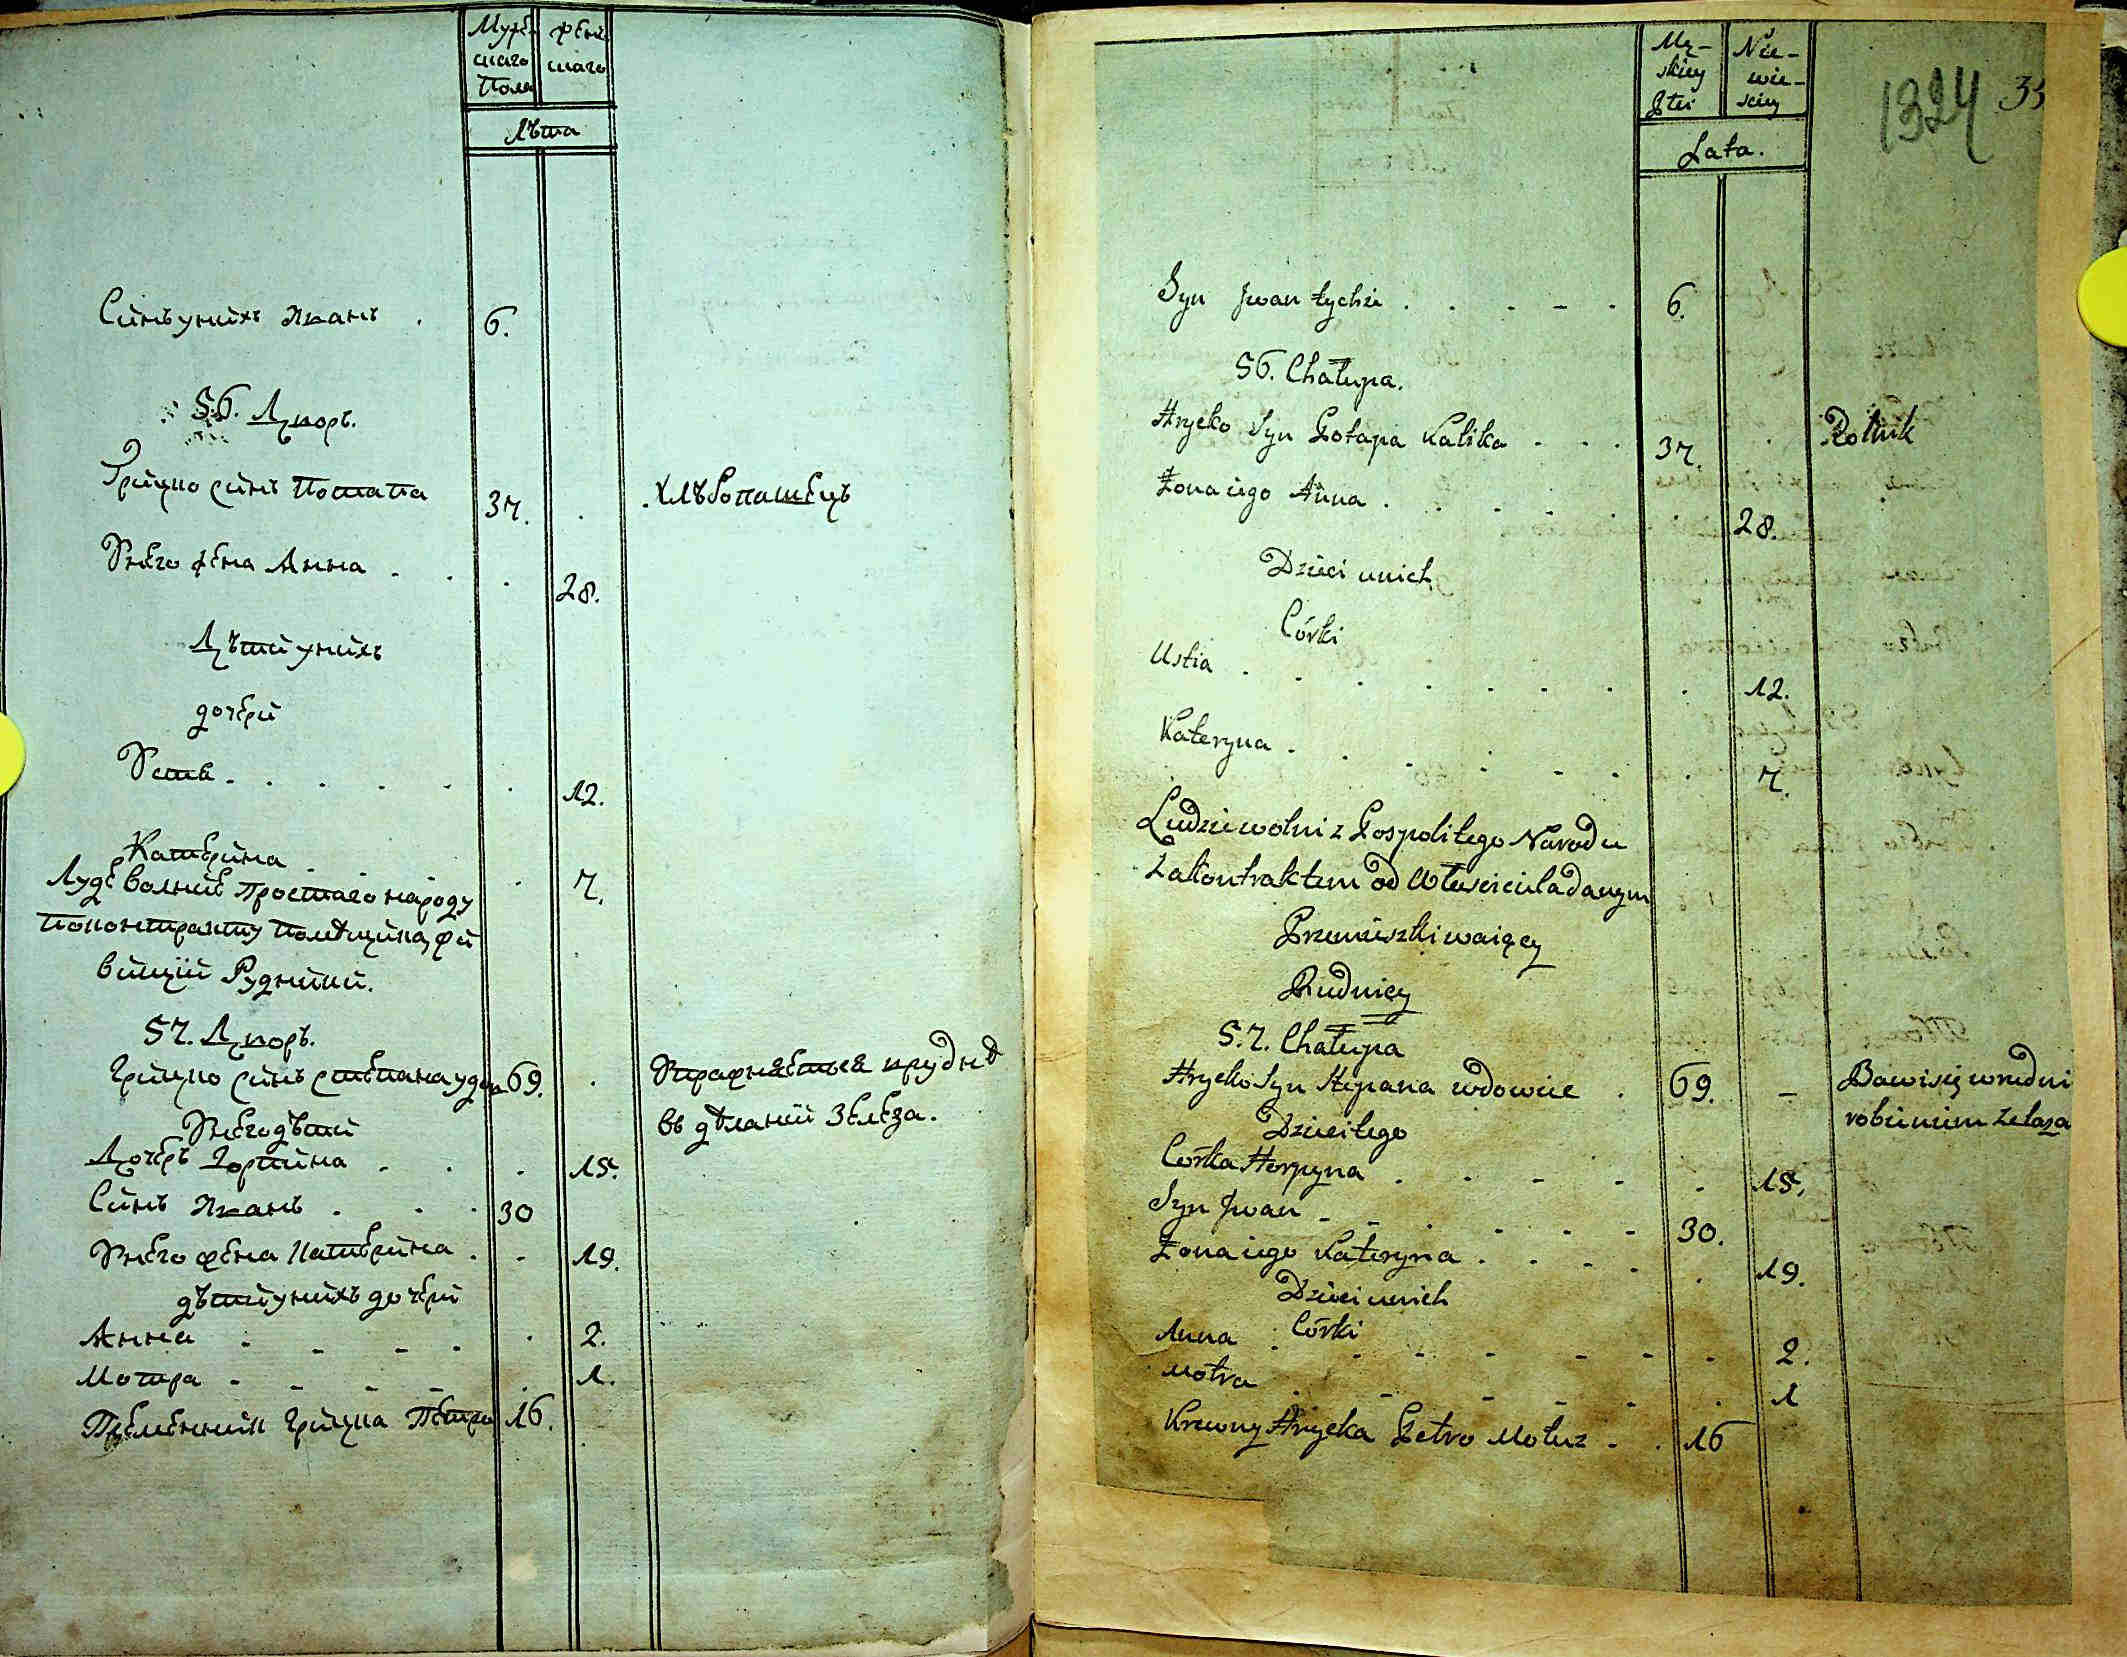 Муже-
скаго
Пола
жен-
скаго
Лѣта
Синъ уних Иванъ . 6.
56. Дворъ.
Грицко синъ Потапа 37. . Хлѣбопашецъ
Унего жена Анна . . . 28.
Дѣти унихъ
дочери
Устя . . . . . . 12.
Катерина . . . . 7.
Люде волние простаго народу
поконтракту помещика, жи
вущии Рудники.
57. Дворъ.
Грицко синъ степана удов 69. . Упражняется врудне
Унего дѣти
въ деланий Зелеза.
Дочеръ Горпина . . . 15.
Синъ Иванъ . . . 30
Унего жена Катерина . . 19.
дѣти унихъ дочери
Анна . . . . . 2.
Мотра . . . . . 1.
Племенник Грицка Петро 16.
Mę-
skiey
Płci
Nie-
wie-
sciey
Lata.
1324 35
Syn Jwan tychże . . . . . 6.
56. Chałupa.
Hrycko Syn Potapa Kalika . . . 37. . Rolnik
Żona iego Anna . . . . . . 28.
Dzieci unich
Córki
Ustia . . . . . . . . 12.
Kateryna . . . . . . . 7.
Ludzie wolni z Pospolitego Narodu
Zakontraktem od Właściciela danym
Przemieszkiwaiący
Rudnicy
57. Chałupa
Hrycko Syn Stepana wdowiec . 69. - Bawi się w rudni
Dzieci tego
robieniem żelaza
Córka Horpyna . . . . . . 15.
Syn Jwan . . . . . . 30.
Żona iego Kateryna . . . . . 19.
Dzieci unich
Córki
Anna . . . . . . . 2.
Motra . . . . . . . 1
Krewny Hrycka Petro Motuz . . 16